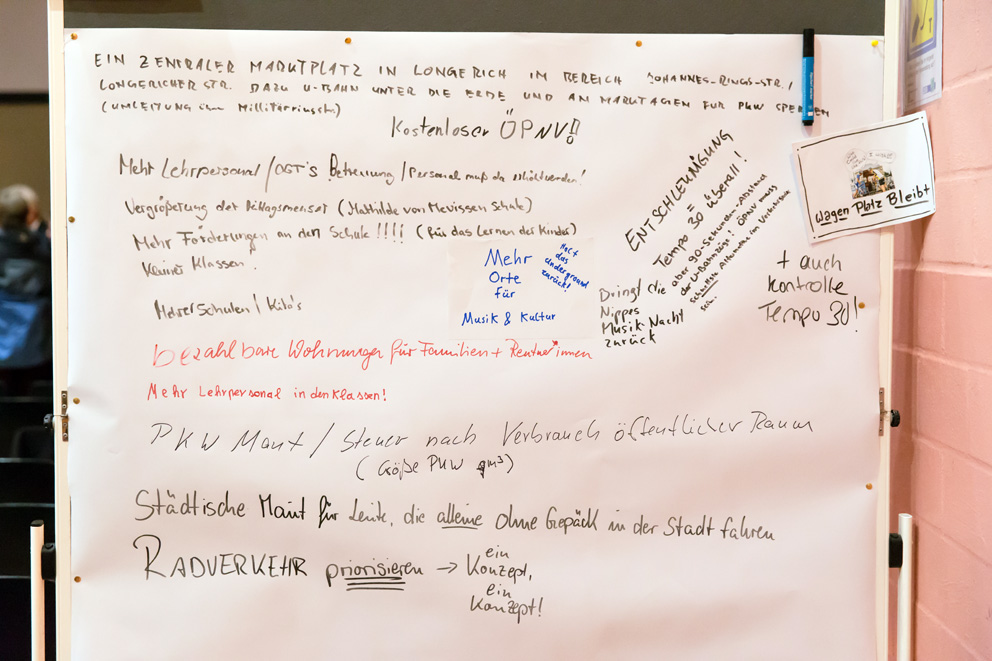 EIN ZENTRALER MARKTPLATZ IN LONGERICH IM BEREICH JOHANNES-RINGS-STR./
LONGERICHER STR. DAZU U-BAHN UNTER DIE ERDE UND AN MARKTAGEN FÜR PKW SPERREN
(UMLEITUNG über Millitärringstr.)
Kostenloser ÖPNV!!
Mehr Lehrpersonal / OGT'S Betreuung / Personal muß da erhöht werden!
Vergrößerung der Mittagsmensa (Mathilde von Mevissen Schule)
Mehr Förderungen an den Schule !!!! (für das Lernen der Kinder)
kleiner Klassen!
Mehr Schulen / Kita's
Mehr
Orte
für
Musik & Kultur
Holt
das
Underground
zurück!
ENTSCHLEUNIGUNG
=
Tempo 30 überall!
aber 90-Sekunden-Abstand
der U-Bahnzüge! ÖPNV muss
schnellste Alternative im Verkehr
sein.
Bringt die
Nippes
Musik-Nacht
zurück
+ auch
kontrolle
Tempo 30!
Wagen Platz Bleibt
bezahlbare Wohnungen für Familien + Rentner*innen
Mehr Lehrpersonal in den Klassen!
PKW Maut / Steuer nach Verbrauch öffentlicher Raum
(Größe PKW m³)
Städtische Maut für Leute, die alleine ohne Gepäck in der Stadt fahren
RADVERKEHR priorisieren → ein
Konzept,
ein
Konzept!